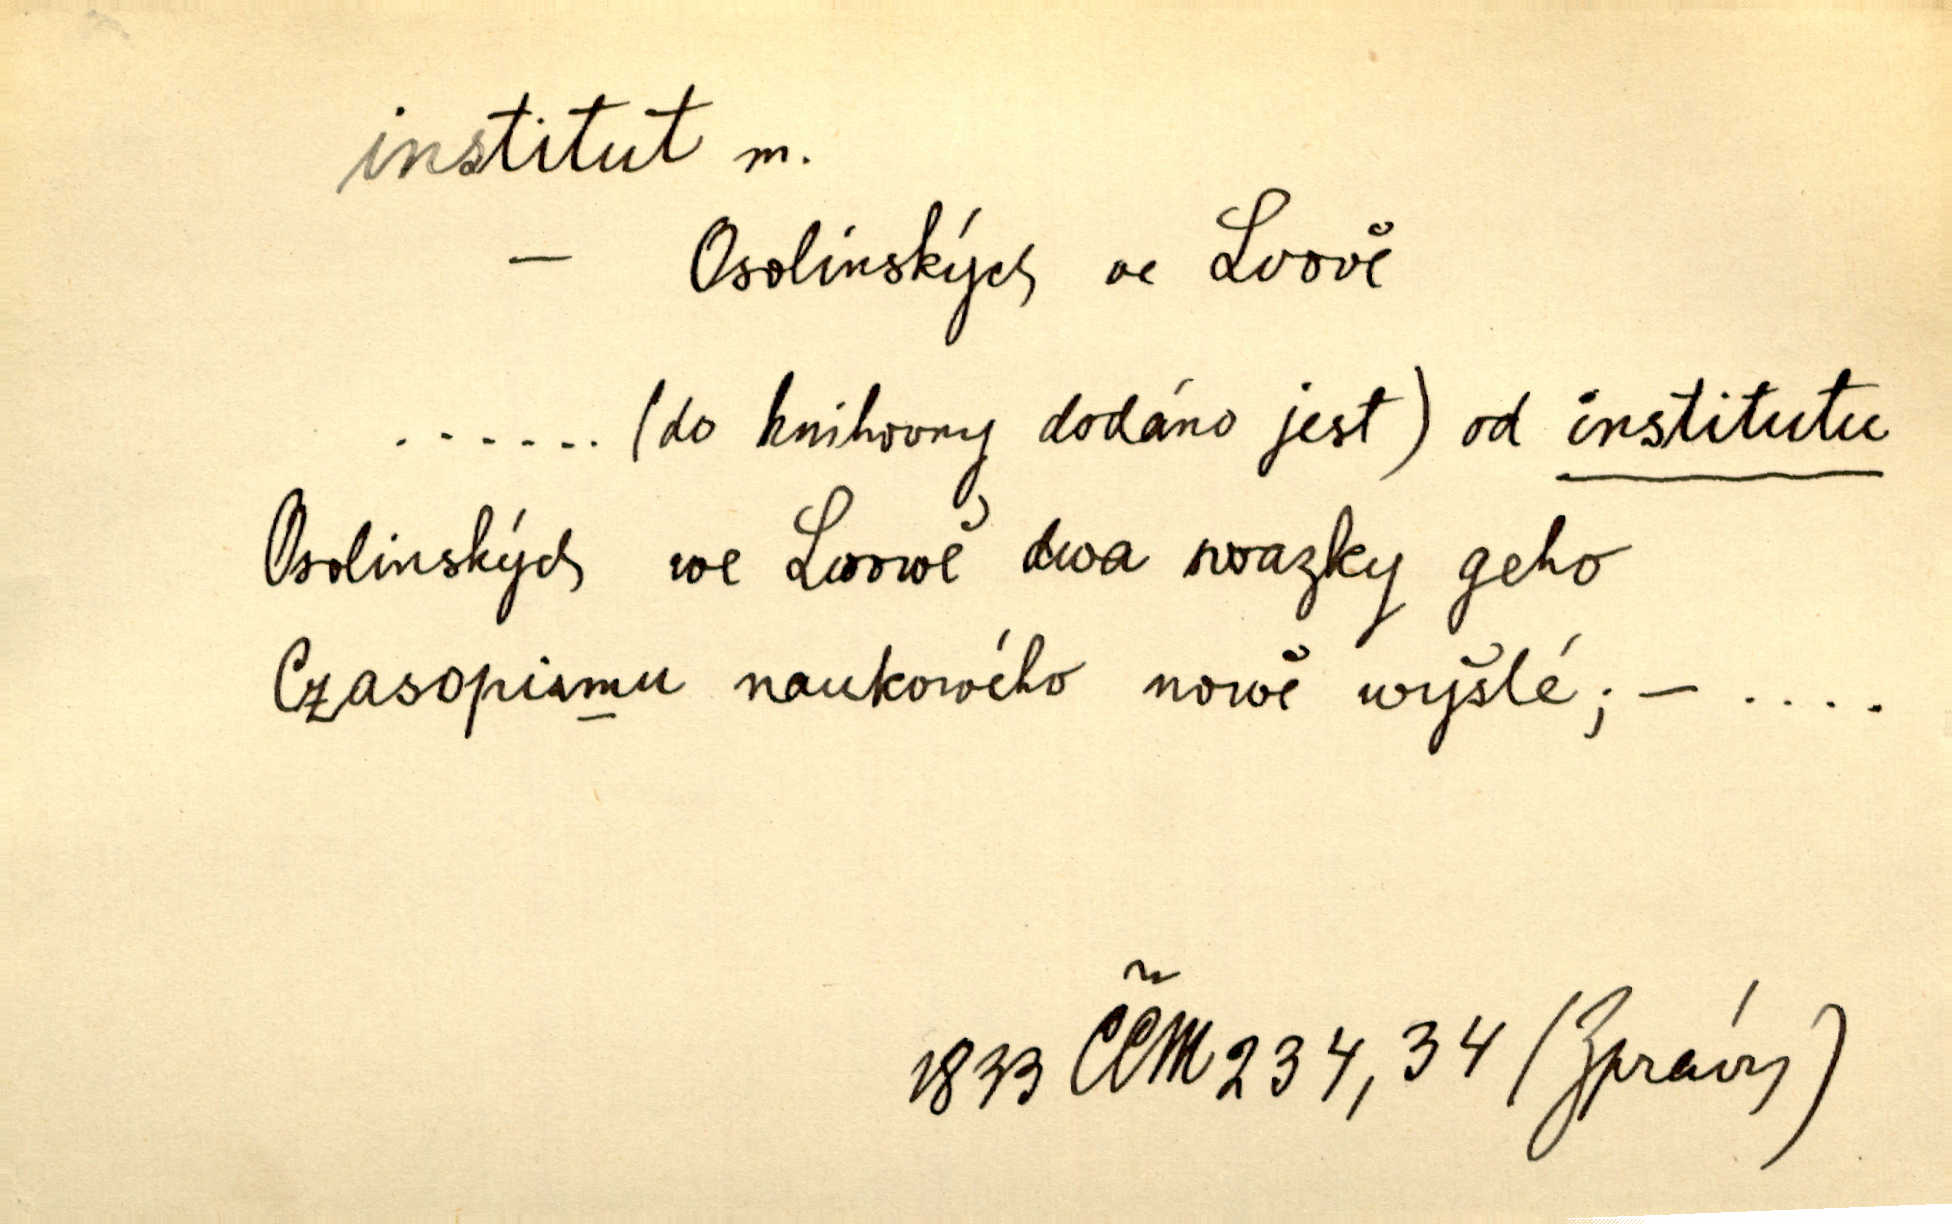 institut m.
— Osolinských ve Lvově
...... (do knihovny dodáno jest) od institutu
Osolinských we Lwowě dwa swazky geho
Czasopismu naukowého nowě wyšlé; — ....
1833 ČČM 234, 34 (Zprávy)